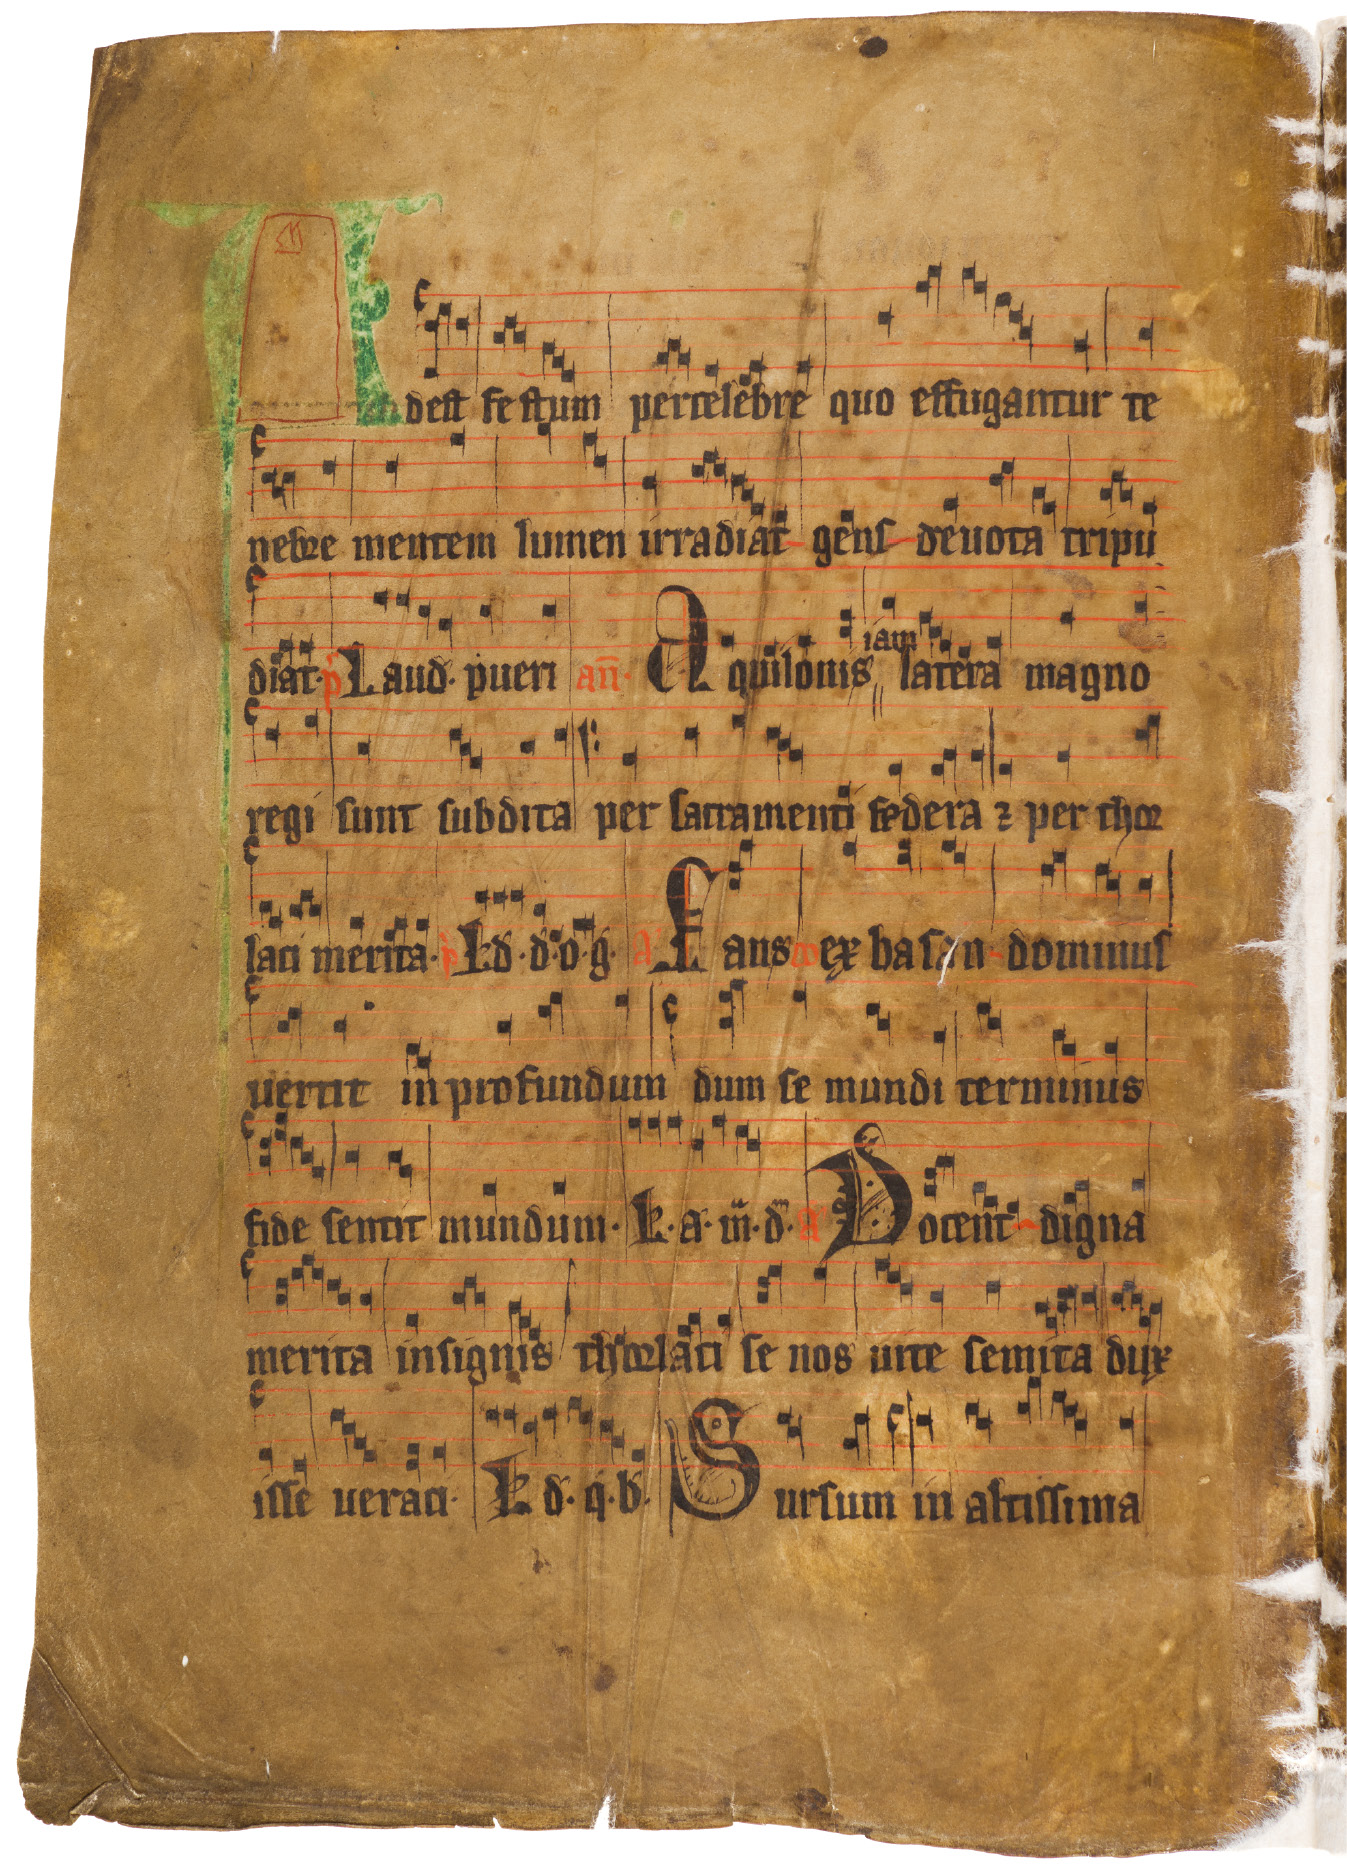 Adest festum percelebre quo effugantur te
nebre mentem lumen irradiat gens deuota tripu
diat· p̄ Laud· pueri an̄· Aquilonis iam latera magno
regi sunt subdita per sacramenti fędera ⁊ per thor
laci merita· p̄ Ld· d·o·g· a̓ Fans ex basan dominus
uertit in profundum dum se mundi terminus
fide sentit mundum· L·a·m̄·d̄· a̓ Docent digna
merita insignis thorlaci se nos uite semita dux
isse ueraci· L d̄·q̄·b̄· Sursum in altissima